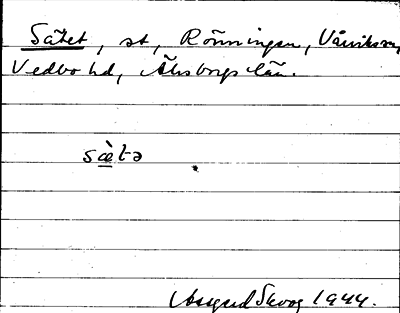 Sätet, st, Rönningen, Vårviks sn,
Vedbo hd, Älvsborgs län.
sæ̀tə
Assgerd Skoog 1944.